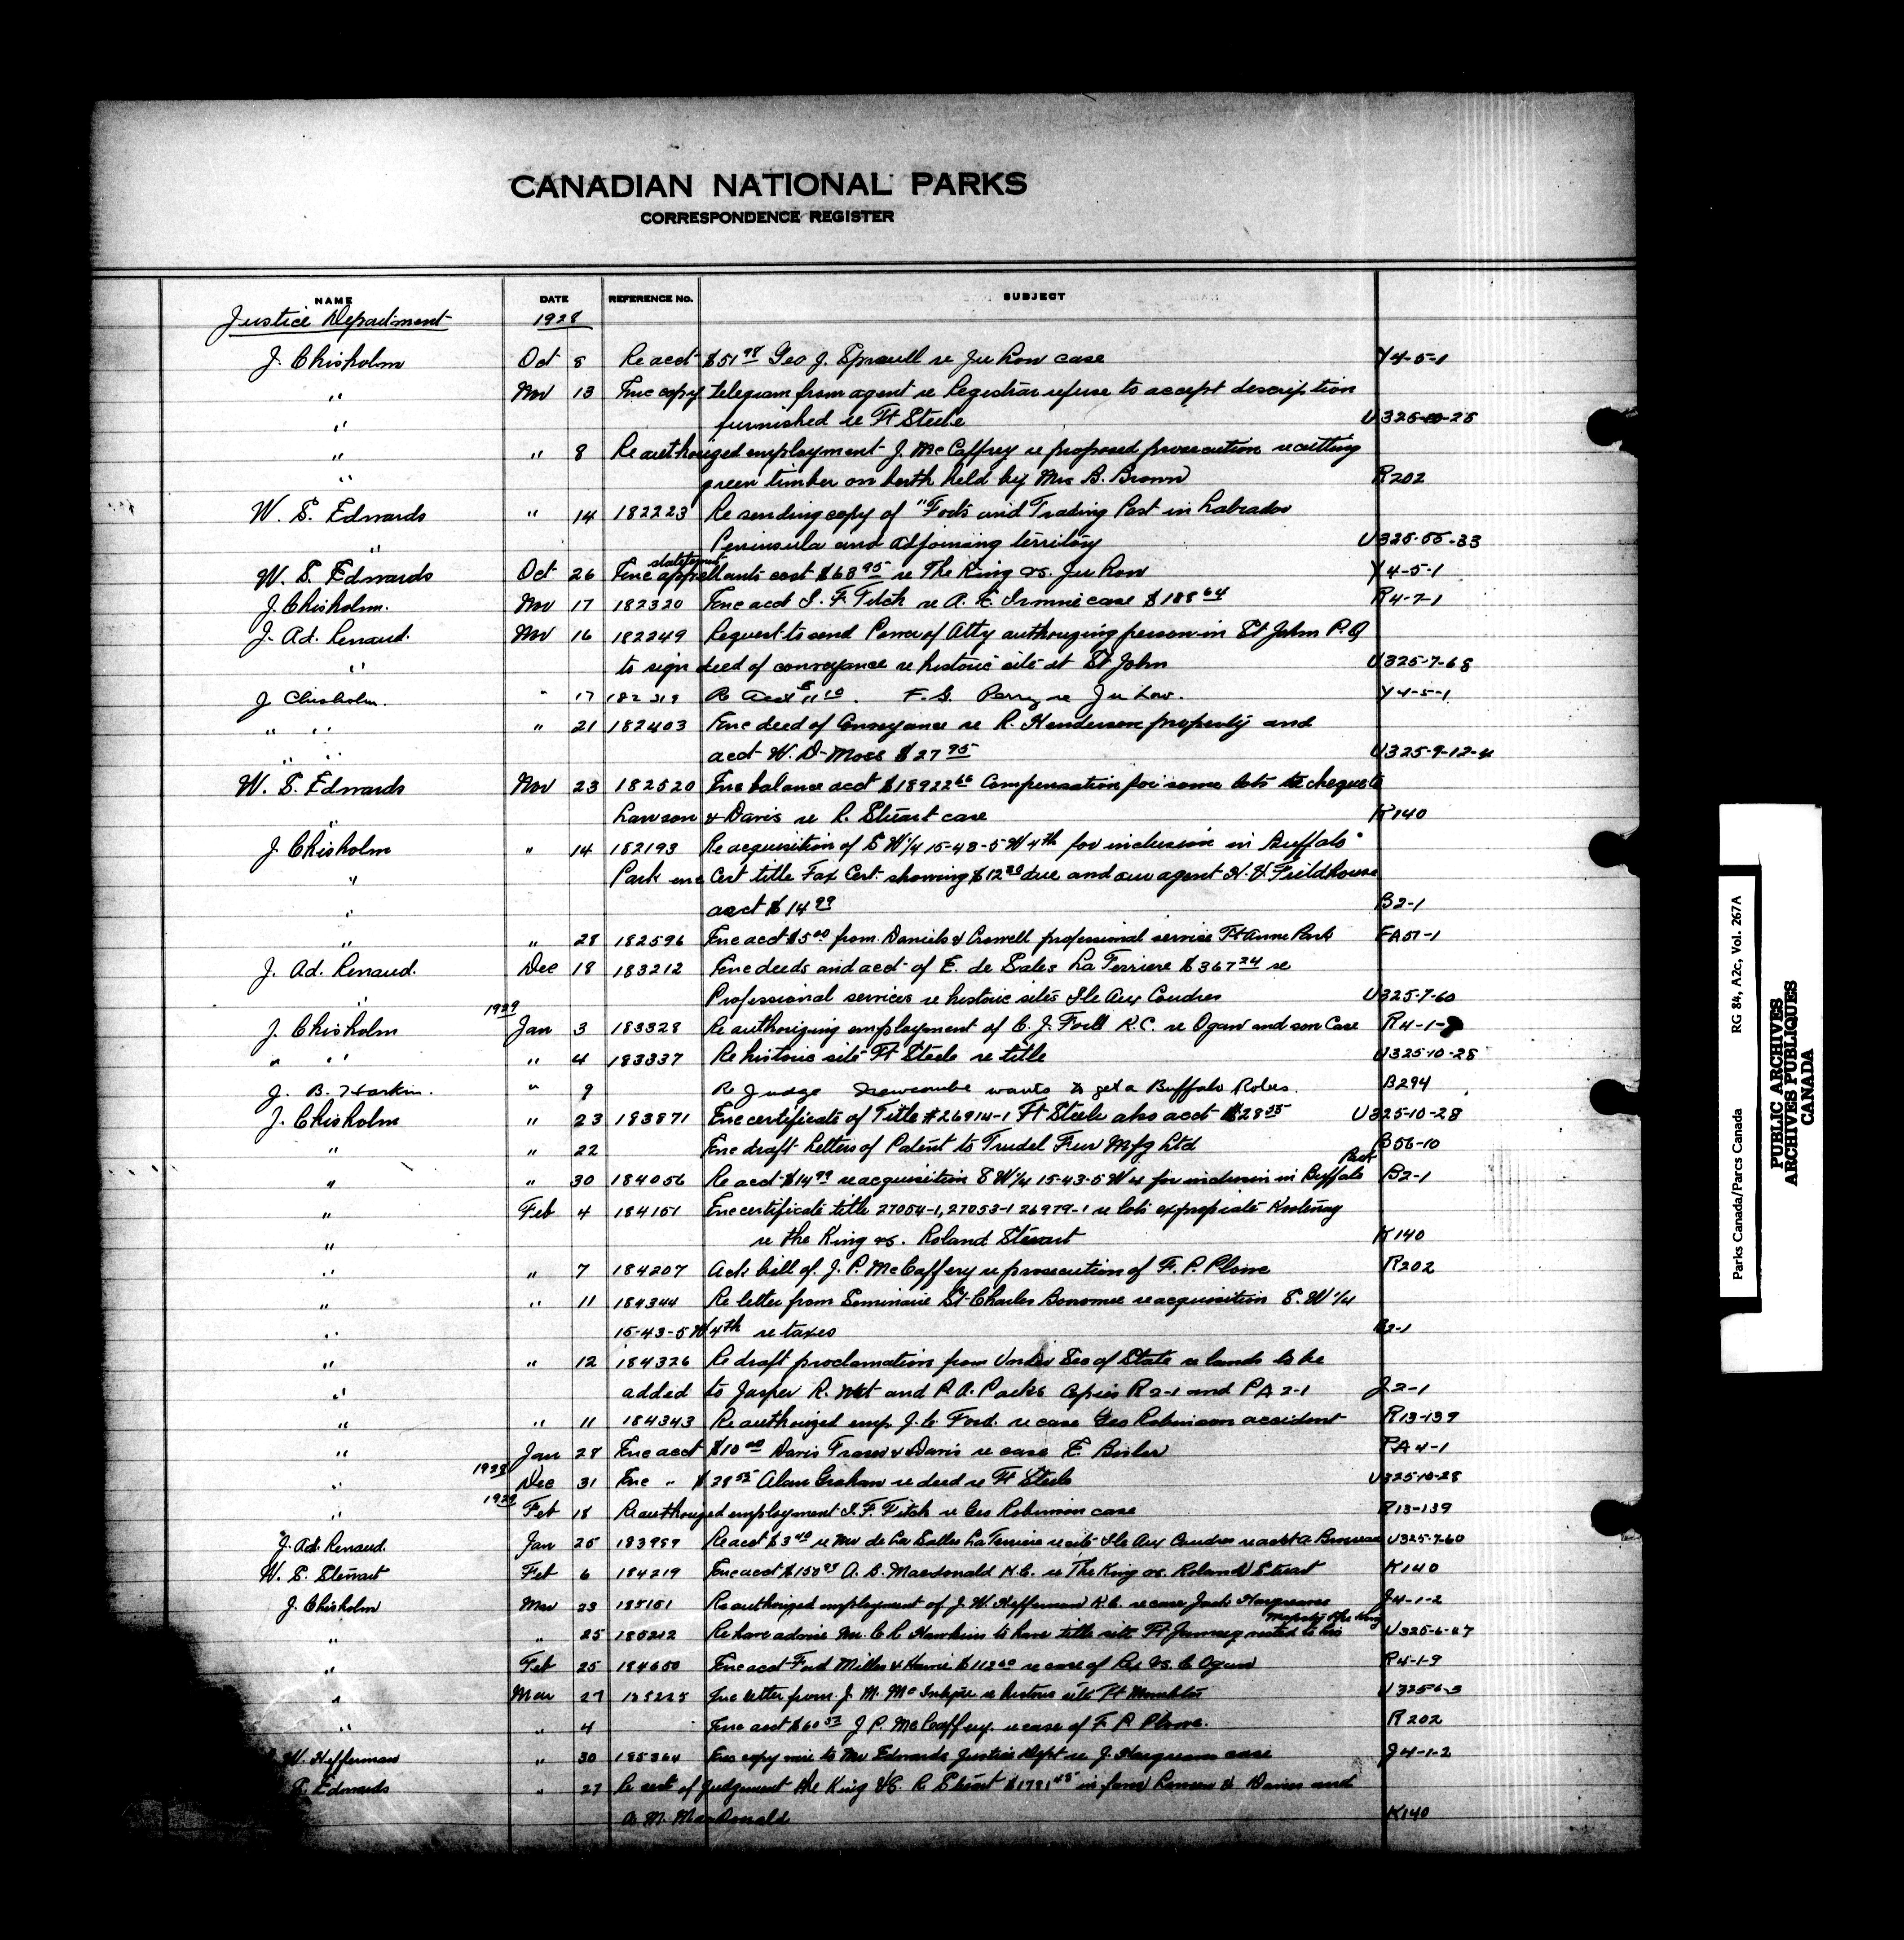 CANADIAN NATIONAL PARKS
CORRESPONDENCE REGISTER
NAME DATE REFERENCE No. SUBJECT
Justice Department 1928
J. Chisholm Oct 8 Re acct $51 98 Geo J. Sproull re Ju Low case Y4-5-1
" Nov 13 Enc copy telegram from agent re Registrar refuse to accept description
" furnished re Ft Steele U325-10-28
" " 8 Re authorized employment J. McCaffrey re proposed prosecution re cutting
" green timber on berth held by Mrs B. Brown R202
W. S. Edwards " 14 182223 Re sending copy of "Forts and Trading Post in Labrador
" Peninsula and adjoining territory U325-55-33
W. S. Edwards Oct 26 Enc statement appellants cost $68 95 re The King vs. Ju Low Y4-5-1
J. Chisholm. Nov 17 182320 Enc acct I. F. Fitch re A. E. case $188 64 R4-7-1
J. Ad. Renaud. Nov 16 182249 Request to send Power of Atty authorizing person in St John P.Q
" to sign deed of conveyance re historic site at St John U325-7-68
J Chisholm. " 17 182319 Re acct $11 10. F. G. Perry re Ju Low. Y4-5-1
" " " 21 182403 Enc deed of Conveyance re R. Henderson property and
" " acct W. D. Moss $27 95 U325-9-12-4
W. S. Edwards Nov 23 182520 Enc balance acct $18922 66 Compensation for some lots cheque to
" Lawson & Davis re R. Stuart case K140
J. Chisholm " 14 182193 Re acquisition of S W 1/4 15-43-5 W 4th for inclusion in Buffalo
" Park enc Cert title Tax Cert. showing $12 80 due and our agent H. V. Fieldhouse
" acct $14 99 B2-1
" " 28 182596 Enc acct $5 00 from Daniels & Crowell professional service Ft Anne Park FA51-1
J. Ad. Renaud. Dec 18 183212 Enc deeds and acct of E. de Sales La Terriere $367 24 re
" Professional services re historic sites Ile Aux Coudres U325-7-60
1929
J. Chisholm Jan 3 183328 Re authorizing employment of C. J. Ford K.C. re Ogaw and son Case R4-1-9
" " " 4 183337 Re historic site Ft Steele re title U325-10-28
J. B. Harkin. " 9 Re Judge Newcombe wants to get a Buffalo Robes. B294
J. Chisholm " 23 183871 Enc certificate of Title #26914-1 Ft Steele also acct $28 55 U325-10-28
" " 22 Enc draft Letters of Patent to Trudel Fur Mfg Ltd B56-10
" " 30 184056 Re acct $14 99 re acquisition S W 1/4 15-43-5 W 4 for inclusion in Buffalo Park B2-1
" Feb 4 184151 Enc certificate title 27054-1, 27053-1 26979-1 re lots expropiate Kootenay
" re the King vs. Roland Stewart K140
" " 7 184207 Ack bill of J. P. McCaffery re prosecution of F. P. Plowe R202
" " 11 184344 Re letter from Seminaire St-Charles Borromee re acquisition S. W 1/4
" 15-43-5 W 4th re taxes B2-1
" " 12 184326 Re draft proclamation from Under Sec of State re lands to be
" added to Jasper R. Mt and P. A. Parks Copies R2-1 and PA2-1 J2-1
" " 11 184343 Re authorized emp J. C Ford. re case Geo Robinson accident R13-139
" Jan 28 Enc acct $10 00 Davis Fraser & Davis re case E. PA4-1
" 1928 Dec 31 Enc " $28 55 Alan Graham re deed re Ft Steele U325-10-28
" 1929 Feb 18 Re authorized employment I. F. Fitch re Geo Robinson case R13-139
J. Ad. Renaud. Jan 25 183959 Re acct $3 40 re Mr de La Salles La Terriere re site Ile Aux Coudres U325-7-60
W. S. Stewart Feb 6 184219 Enc acct $150 A. B. Macdonald K.C. re The King vs. Roland Stuart K140
J. Chisholm Mar 23 185151 Re authorized employment of J. W. Heffernan K.C. re case Jack Hargreaves J4-1-2
" " 25 185212 Re have advise Mr. C R Hawkins to have title site Ft Jemseg vested to his Majesty the King U325-6-27
" Feb 25 184650 Enc acct Ford Miller & $112 60 re case of Rex vs. C Ogaw R4-1-9
" Mar 27 185225 Enc letter from J. M. re historic site Ft U325-6-3
" " 4 Enc acct $60 J P. McCaffery re case of F. P Plowe. R202
W. Heffernan " 30 185364 Enc copy to Mr Edwards Justice Dept re J. Hargreaves case J4-1-2
S. Edwards " 27 Re cert of Judgement the King vs. R Stuart $1781 45 in favor & Davis and
A. M. MacDonald K140
Parks Canada/Parcs Canada RG 84, A2c, Vol. 267A
PUBLIC ARCHIVES
ARCHIVES PUBLIQUES
CANADA